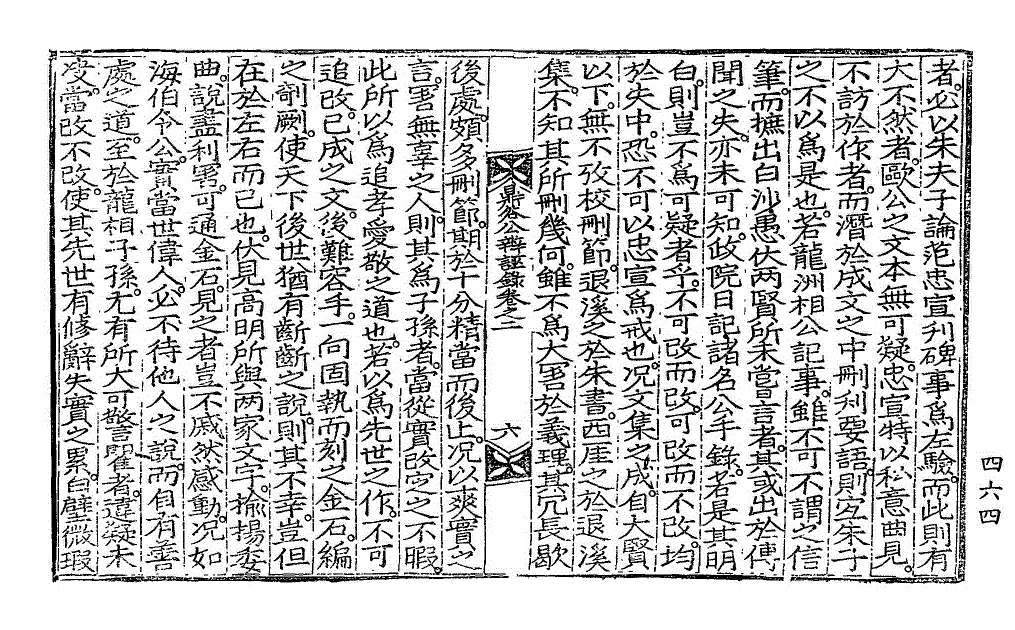 者必以朱夫子論范忠宣刋碑事爲左驗而此則有
大不然者歐公之文本無可疑忠宣特以私意曲見
不訪於作者而潛於成文之中刪刋要語則宜朱子
之不以爲是也若龍洲相公記事雖不可不謂之信
筆而摭出白沙愚伏兩賢所未嘗言者其或出於傳
聞之失亦未可知政院日記諸名公手錄若是其明
白則豈不爲可疑者乎不可改而改可改而不改均
於失中恐不可以忠宣爲戒也况文集之成自大賢
以下無不攷校刪節退溪之於朱書西厓之於退溪
集不知其所刪幾何雖不爲大害於義理其冗長歇
鼎谷公辨誣錄卷之二
六
後處頗多刪節期於十分精當而後止况以爽實之
言害無辜之人則其爲子孫者當從實改定之不暇
此所以爲追孝愛敬之道也若以爲先世之作不可
追改已成之文後難容手一向固執而刻之金石編
之剞劂使天下後世猶有齗齗之說則其不幸豈但
在於左右而已也伏見高明所與兩家文字揄揚委
曲說盡利害可通金石見之者豈不戚然感動况如
海伯令公實當世偉人必不待他人之說而自有善
處之道至於龍相子孫尤有所大可警瞿者違疑未
凌當改不改使其先世有修辭失實之累白璧微瑕
四六四